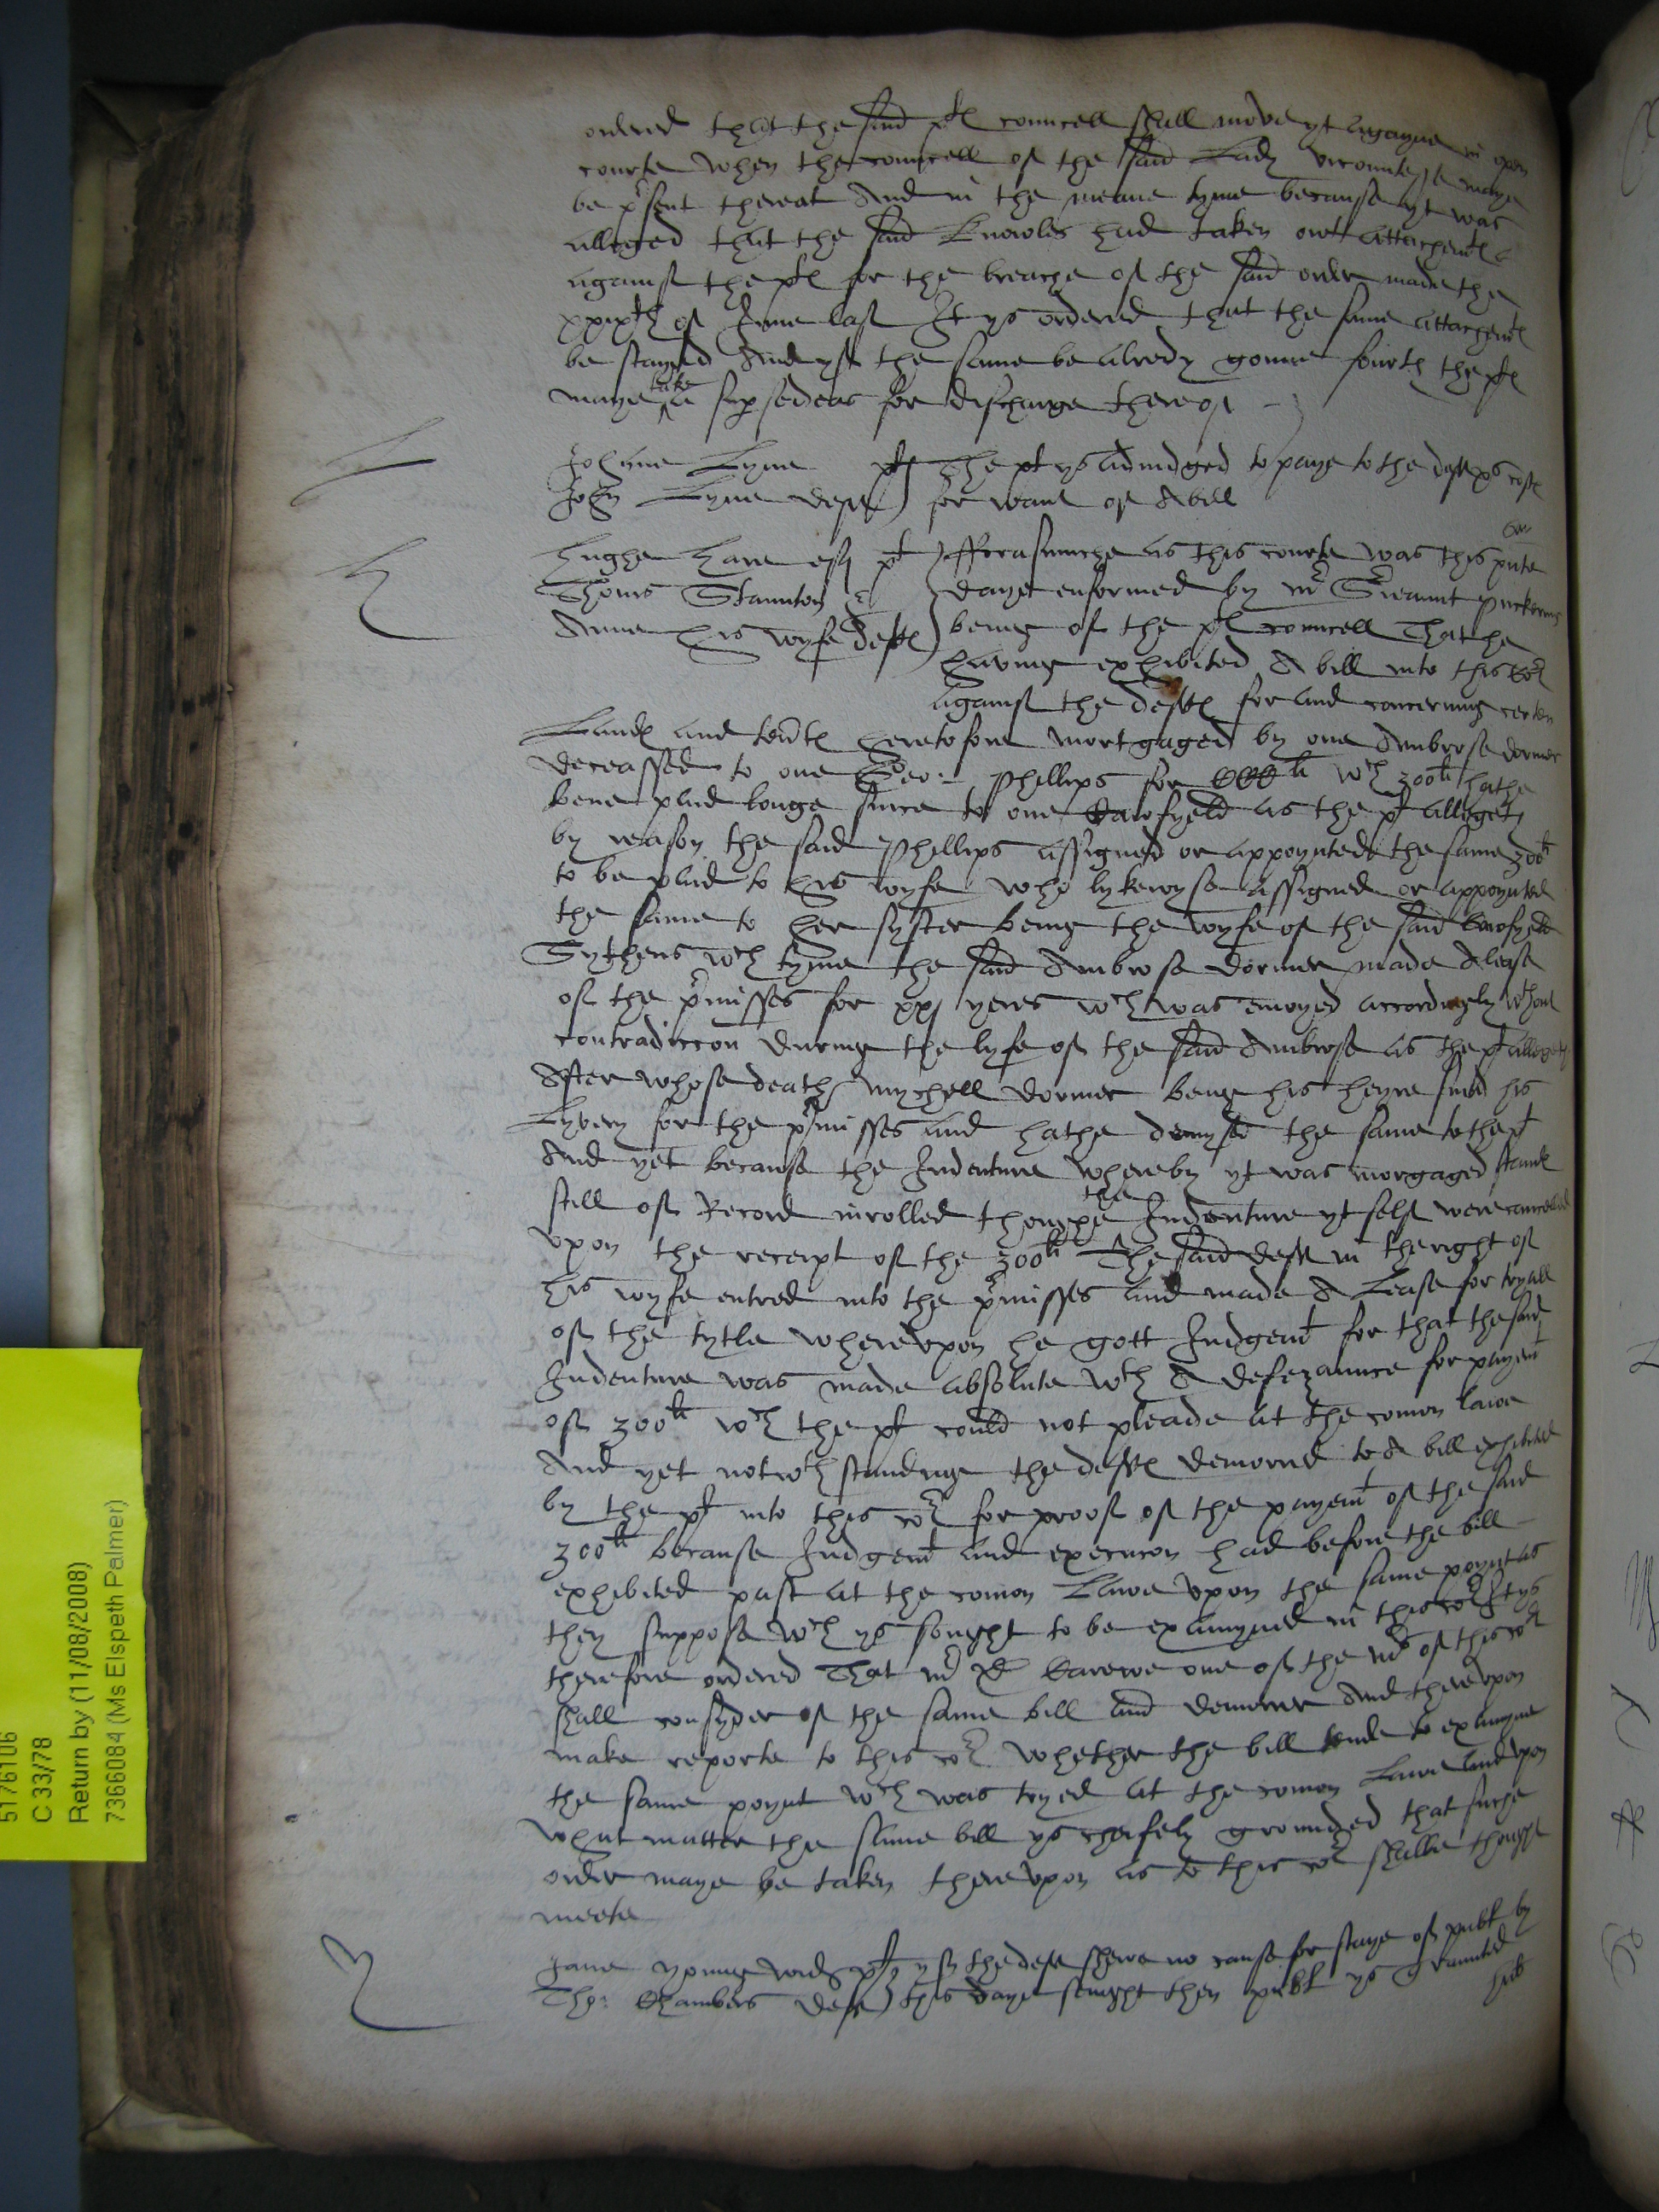 ordered that the said plt councell shall move yt agayne in open
courte when the councell of the said Lady vicountesse maye
be pͬsent thereat And in the meane tyme because yt was
alleged that the said Knowles had taken out attachemt
against the plt for the breache of the said order made the
xxixth of June last It ys ordered that the same attachemt
be stayed And yf the same be alredy gonne fourth the plt
maye take a supsedeas for discharge thereof
Johane Lyne plt The plt ys adiudged to paye to the deft costes
John Lyne deft for want of A bill
Hughe Hare esq plt Fforasmuche as this courte was this pnte
Thoms Staunton & daye enformed by mr Sreaunt Puckering
Anne his wyfe deftes being of the pltes councell That he
having exhibited A bill into this Cot
against the deftes for and concerning certen
Landes and tentes heretofore mortgaged by one Ambrose dormer
deceassed to one Geo: Phillips for CCCli wch 300li hathe
bene paid longe since to one Cawfyeld as the plt allegeth
by reason the said Phillips assigned or appoynted the same 300li
to be paid to his wyfe who lykewyse assigned or appoynted
the same to her syster being the wyfe of the said Cawfyeld
Sythens wch tyme the said Ambrose dormer made A lease
of the pͬmisses for xxj yeres wch was enioyed accordingly wthout
contradiccon during the lyfe of the said Ambrose as the plt allegeth
After whose death Mychell dormer being his heyre sued his
Lyvery for the pͬmisses and hathe demysed the same to the plt
And yet because the Indenture whereby yt was morgaged stands
still of Record inrolled thoughe the Indenture yt self were cancelled
vpon the receipt of the 300li The said deft in the right of
his wyfe entred into the pͬmisses and made A Lease for tryall
of the tytle wherevpon he gott Iudgemt for that the said
Indenture was made absolute wth A defezaunce for payemt
of 300li wch the plt could not pleade at the comon lawe
And yet notwthstanding the deftes demorred to A bill exhibited
by the plt into this cot for proof of the payemt of the said
300li because Iudgemt and execucon had before the bill
exhibited past at the comon Lawe vpon the same poynt as
they suppose wch ys sought to be examyned in this cot It ys
therefore ordered That mr Dr Carewe one of the mrs of this cot
shall consyder of the same bill and demorrer And therevpon
make reporte to this cot whether the bill tende to examyne
the same poynt wch was tryed at the comon Lawe and vpon
what matter the same bill ys cheifely grounded that suche
order maye be taken therevpon as to this cot shalbe thought
meete
Jane Yonng wid plt yf the deft shewe no cause for staye of publ by
Tho: Chambers deft this daye senight then publ ys graunted
5176106
C 33/78
Return by (11/08/2008)
7366084 (Ms Elspeth Palmer)